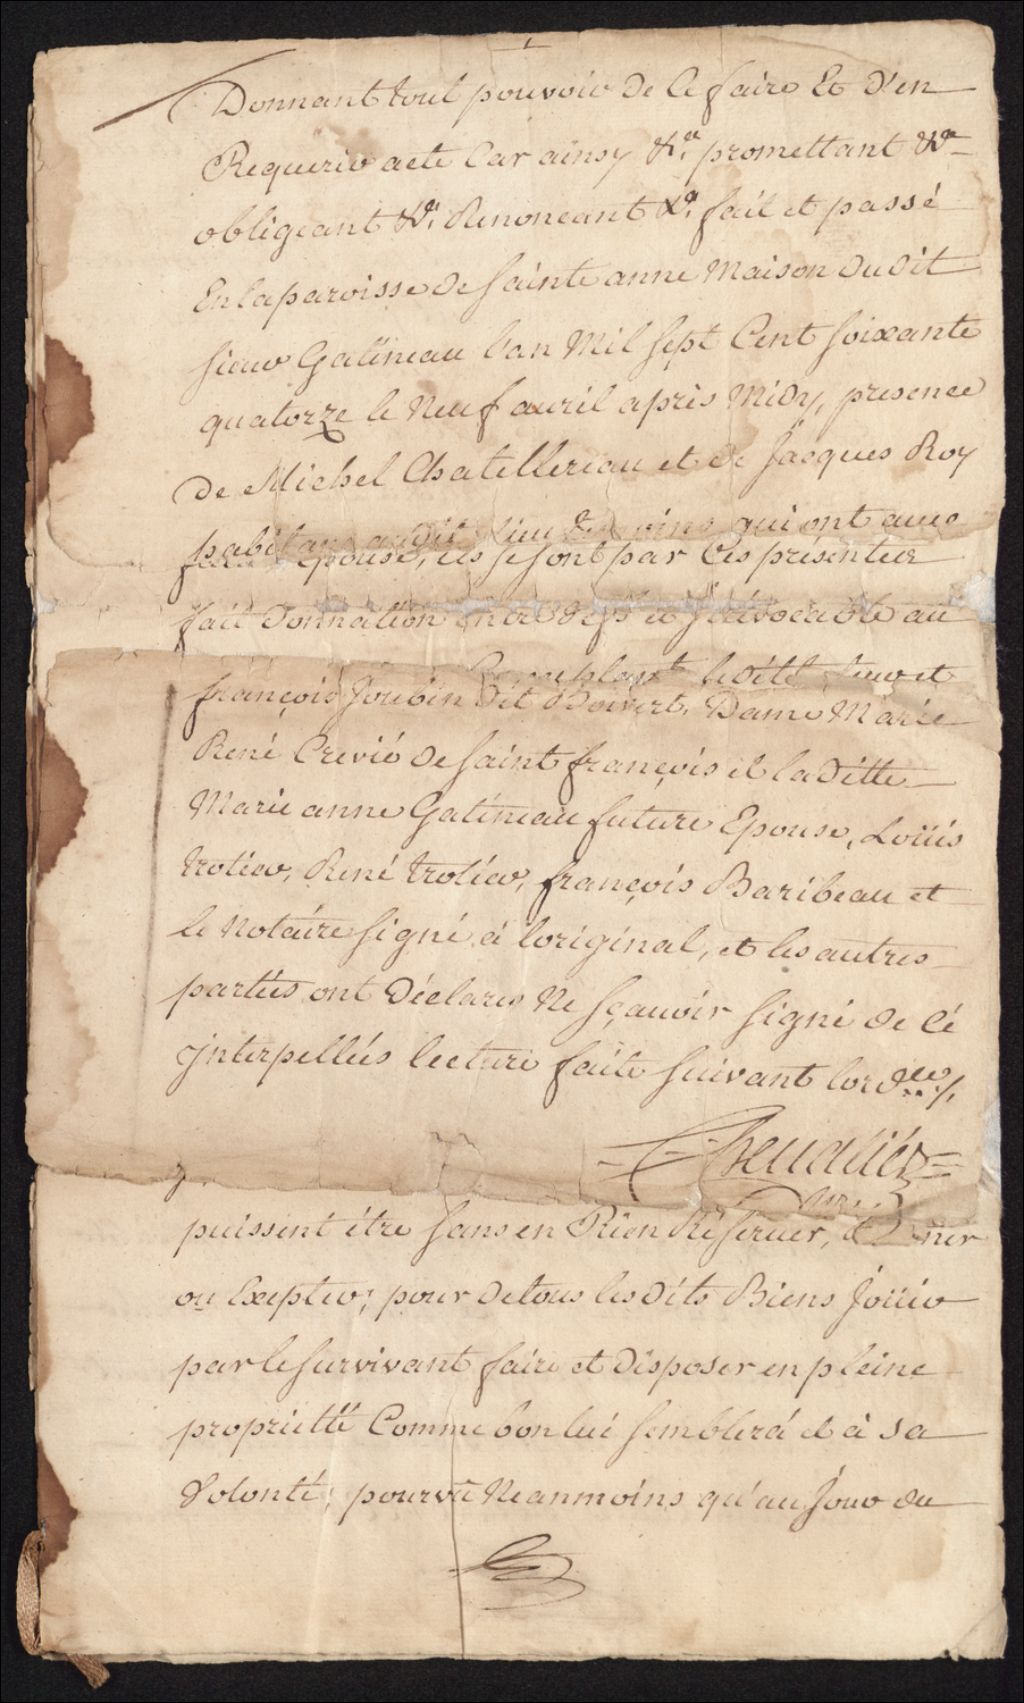 Donnant tout pouvoir de le faire Et d'en
Requerir acte Car ainsy &c. promettant &c
obligeant &c. Renonceant &c. fait et passé
En la paroisse de sainte anne Maison dudit
sieur Gatineau l'an Mil sept Cent soixante
quatorze le Neuf avril après Midy, presence
de Michel Chatellereau et de Jacques Roy
habitans audit lieu qui ont avec
Epouse, ils se sont par Ces présentes
fait Donnation entre vifs et irévocable au
ledit
françois Joubin dit Boivert, Dame Marie
René Crevié de saint françois et la ditte
Marie anne Gatineau future Epouse, Loüis
trotier, René trotier, françois Baribeau et
le Notaire signé à loriginal, et les autres
parties ont Déclarés Ne sçavoir signé de Cé
interpellés lecture faite suivant lord.ce /.
Chevalier
puissent être sans en Rien Réserver,
ou Exepter; pour de tous les dits Biens Joüir
par le survivant faire et disposer en pleine
proprietté Comme bon lui semblerá et à sa
Volonté; pourvû Neanmoins qu'au Jour du